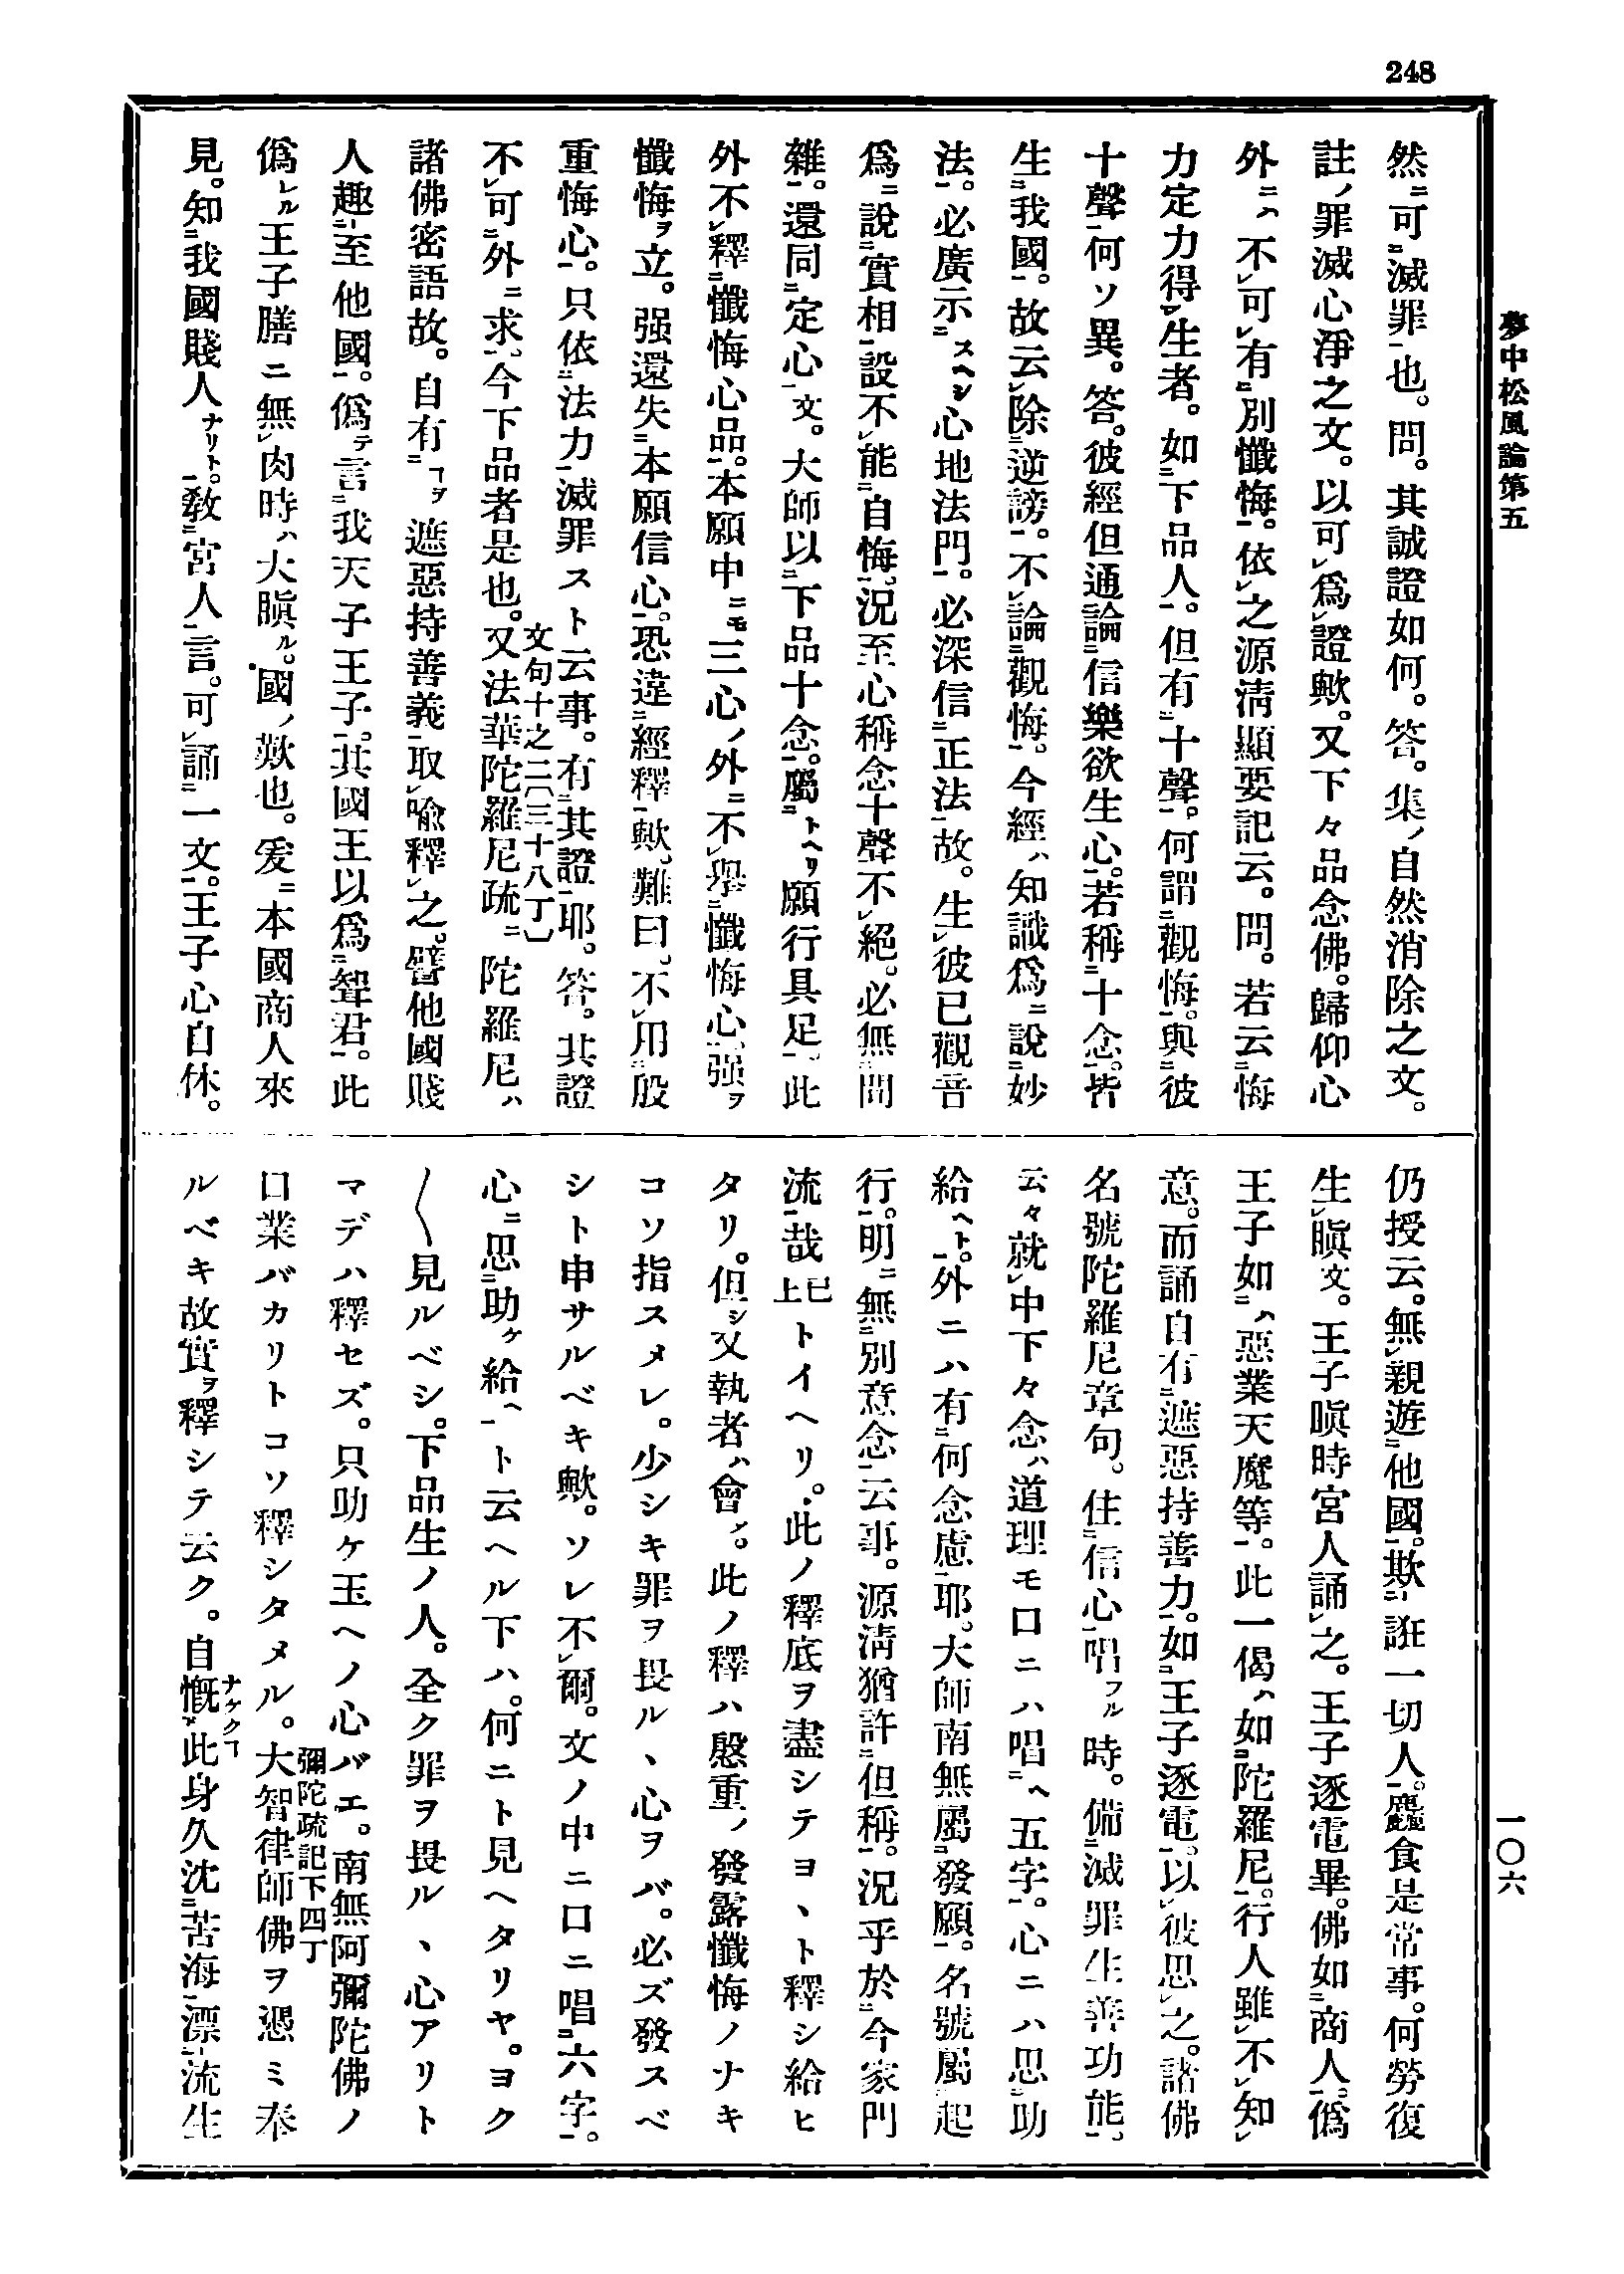 248
夢中松風論第五
一〇六
然ニ可レ滅罪一也。問。其誠證如何。答。集ノ自然消除之文。
註ノ罪滅心淨之文。以可レ爲レ證歟。又下々品念佛。歸仰心
外ニハ不レ可レ有二別懺悔一。依レ之源淸顯要記云。問。若云二悔
力定力得一レ生者。如二下品人一。但有二十聲一。何謂二觀悔一。與二彼
十聲一何ソ異。答。彼經但通論二信樂欲生心一。若稱二十念一。皆
生二我國一。故云レ除二逆謗一。不レ論二觀悔一。今經ハ知識爲ニ說二妙
法一。必廣示二スヘシ心地法門一。必深信二正法一故。生レ彼已觀音
爲ニ說二實相一設不レ能二自悔一。況至心稱念十聲不レ絕。必無二間
雜一。還同二定心一文。大師以二下品十念一。屬二トヘリ願行具足一。此
外不レ釋二懺悔心品一。本願中ニモ三心ノ外ニ不レ擧二懺悔心一。强ヲ
懺悔ヲ立。强還失二本願信心一。恐違二經釋一歟。難曰。不レ用二殷
重悔心一。只依二法力一滅罪スト云事。有二其證一耶。答。其證
不レ可二外ニ求一。今下品者是也。文句十之二(三十八丁)又法華陀羅尼疏ニ陀羅尼ハ
諸佛密語故。自有二コヲ遮惡持善義一取レ喩釋レ之。譬他國賤
人趣二至他國一。僞テ言二我天子王子一。其國王以爲二聟君一。此
僞レル王子膳ニ無レ肉時ハ大瞋ル。國ノ歎也。爰ニ本國商人來
見。知二我國賤人ナリト一。敎二宮人一言。可レ誦二一文一。王子心自休。
仍授云。無レ親遊二他國一。欺二誑一切人一。麤食是常事。何勞復
生レ瞋文。王子瞋時宮人誦レ之。王子逐電畢。佛如二商人一。僞
王子如二ハ惡業天魔等一。此一偈ハ如二陀羅尼一。行人雖レ不レ知レ
意。而誦自有二遮惡持善力一。如二王子逐電一。以レ彼思レ之。諸佛
名號陀羅尼章句。住二信心一唱フル時。備二滅罪生善功能一。
云々就レ中下々念ハ道理モ口ニハ唱二ヘ五字一。心ニハ思二助
給ヘト一。外ニハ有二何念慮一耶。大師南無屬二發願一。名號屬二起
行一。明ニ無二別意念一云事。源淸猶許二但稱一。況乎於二今家門
流一哉已上トイヘリ。此ノ釋底ヲ盡シテヨヽト釋シ給ヒ
タリ。但シ又執者ハ會メ。此ノ釋ハ慇重ノ發露懺悔ノナキ
コソ指スメレ。少シキ罪ヲ畏ルヽ心ヲバ。必ズ發スベ
シト申サルベキ歟。ソレ不レ爾。文ノ中ニ口ニ唱二六字一。
心ニ思二助ケ給ヘ一ト云ヘル下ハ。何ニト見ヘタリヤ。ヨク
〱見ルベシ。下品生ノ人。全ク罪ヲ畏ルヽ心アリト
マデハ釋セズ。只助ケ玉ヘノ心バエ。南無阿彌陀佛ノ
口業バカリトコソ釋シタメル。彌陀疏記下四丁大智律師佛ヲ慿ミ奉
ルベキ故實ヲ釋シテ云ク。自慨ナゲクコ此身久沈二苦海一漂二流生